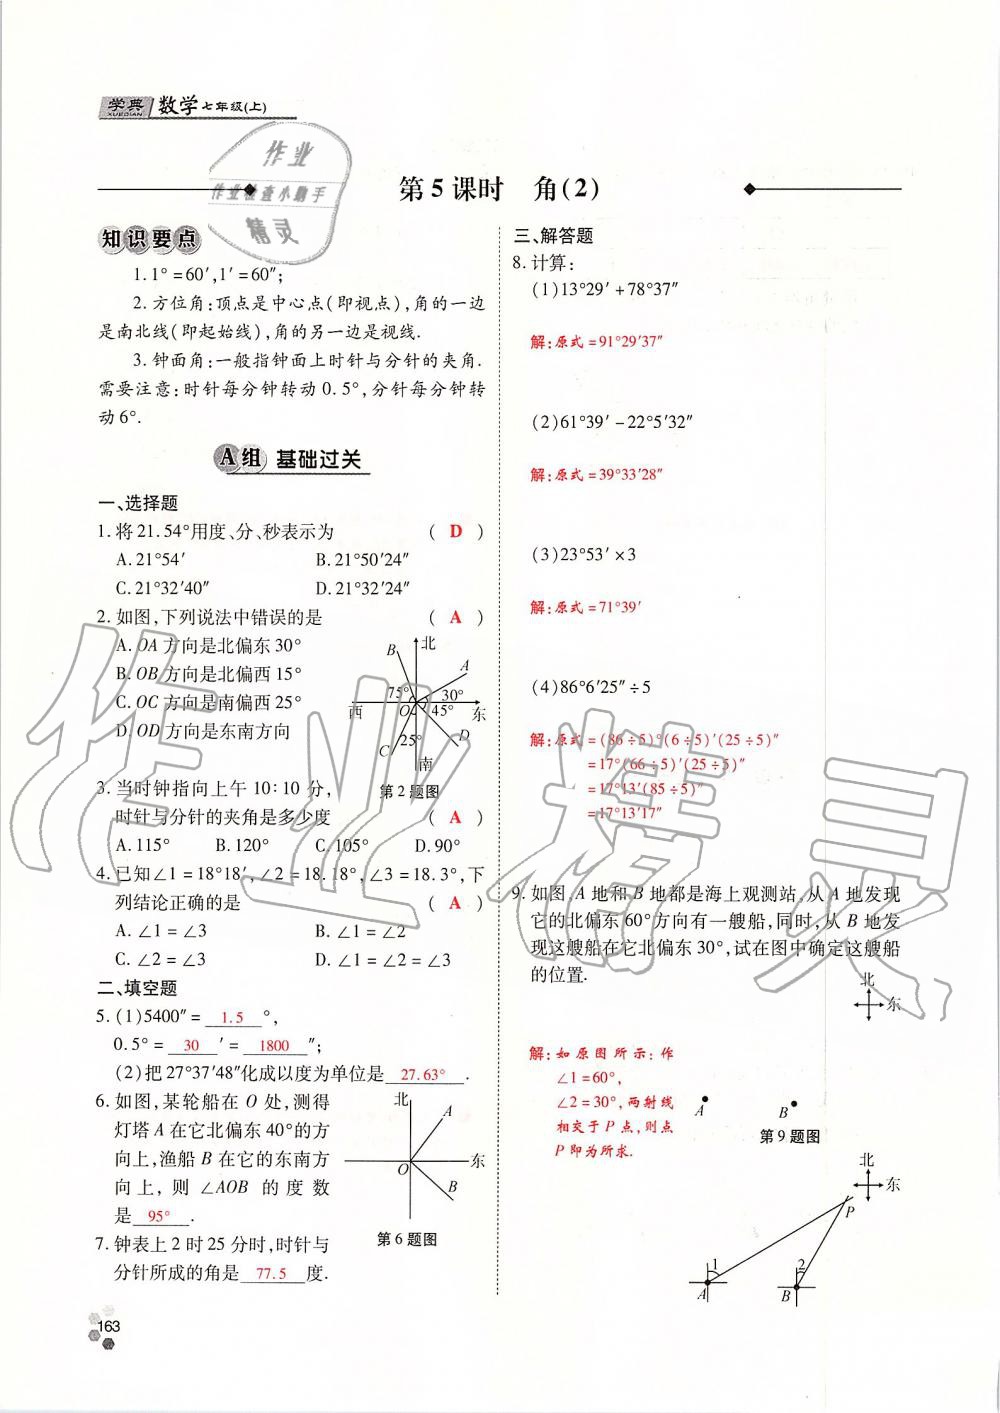 学典 数学七年级(上)
XUEDIAN
作业
作业检查小助手
精灵
第5课时 角(2)
知识要点
1.1°=60′,1′=60″;
2.方位角:顶点是中心点(即视点),角的一边
是南北线(即起始线),角的另一边是视线.
3.钟面角:一般指钟面上时针与分针的夹角.
需要注意:时针每分钟转动0.5°,分针每分钟转
动6°.
A组 基础过关
一、选择题
1.将21.54°用度、分、秒表示为 ( D )
A.21°54′ B.21°50′24″
C.21°32′40″ D.21°32′24″
2.如图,下列说法中错误的是 ( A )
A.OA方向是北偏东30°
B.OB方向是北偏西15°
C.OC方向是南偏西25°
D.OD方向是东南方向
北
B
A
75° 30°
西 O 45° 东
C 25° D
南
第2题图
3.当时钟指向上午10:10分,
时针与分针的夹角是多少度 ( A )
A.115° B.120° C.105° D.90°
4.已知∠1=18°18′,∠2=18.18°,∠3=18.3°,下
列结论正确的是 ( A )
A.∠1=∠3 B.∠1=∠2
C.∠2=∠3 D.∠1=∠2=∠3
二、填空题
5.(1)5400″=1.5°,
0.5°=30′=1800″;
(2)把27°37′48″化成以度为单位是27.63°.
6.如图,某轮船在O处,测得
灯塔A在它北偏东40°的方
向上,渔船B在它的东南方
向上,则∠AOB的度数
是95°.
北
A
O 东
B
第6题图
7.钟表上2时25分时,时针与
分针所成的角是77.5度.
163
三、解答题
8.计算:
(1)13°29′+78°37″
解:原式=91°29′37″
(2)61°39′-22°5′32″
解:原式=39°33′28″
(3)23°53′×3
解:原式=71°39′
(4)86°6′25″÷5
解:原式=(86÷5)°(6÷5)′(25÷5)″
=17°(66÷5)′(25÷5)″
=17°13′(85÷5)″
=17°13′17″
9.如图A地和B地都是海上观测站,从A地发现
它的北偏东60°方向有一艘船,同时,从B地发
现这艘船在它北偏东30°,试在图中确定这艘船
的位置.
北
东
解:如原图所示:作
∠1=60°,
∠2=30°,两射线
相交于P点,则点
P即为所求.
A B
第9题图
北
东
P
1 2
A B
作业精灵